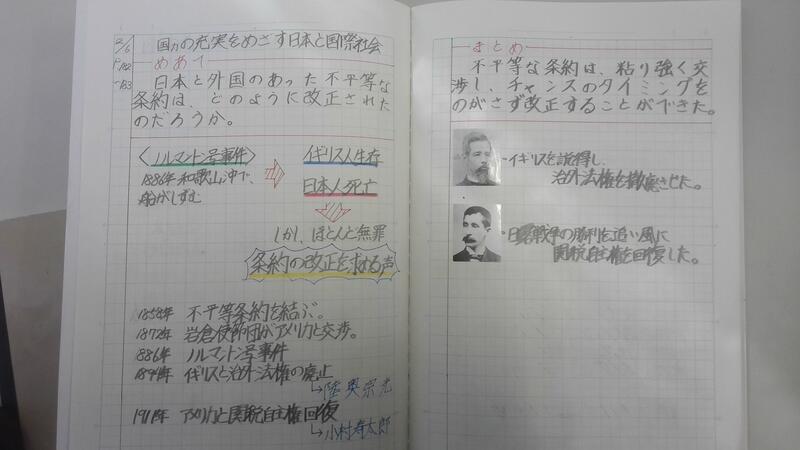 2/6
P182
~183
国力の充実をめざす日本と国際社会
めあて
日本と外国のあった不平等な
条約は、どのように改正された
のだろうか。
〈ノルマントン号事件〉
1886年 和歌山沖で、
船がしずむ
イギリス人生存
日本人死亡
しかし、ほとんど無罪
条約の改正を求める声
1858年 不平等条約を結ぶ。
1872年 岩倉使節団がアメリカと交渉。
1886年 ノルマントン号事件
1894年 イギリスと治外法権の廃止
陸奥宗光
1911年 アメリカと関税自主権回復
小村寿太郎
まとめ
不平等な条約は、粘り強く交
渉し、チャンスのタイミングを
のがさず改正することができた。
・イギリスを説得し、
治外法権を撤廃させた。
・日露戦争の勝利を追い風に
関税自主権を回復した。